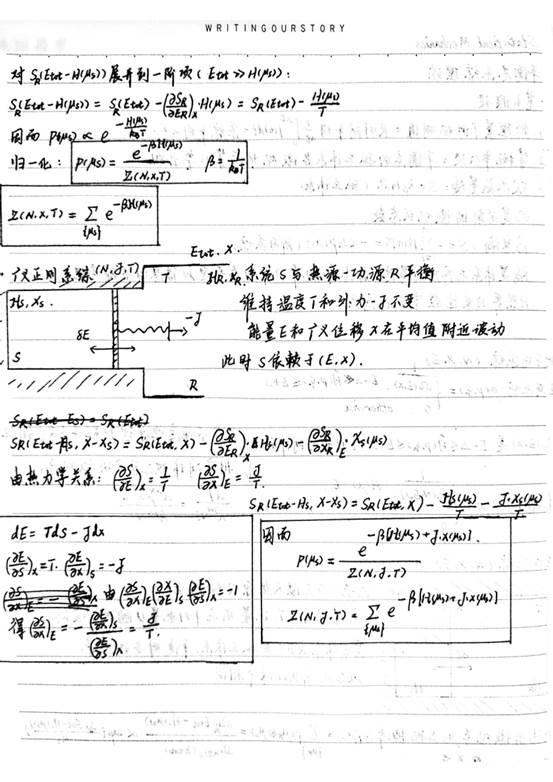 WRITINGOURSTORY
对 S_R(Etot-H(μs)) 展开到一阶项 (Etot≫H(μs)):
S_R(Etot-H(μs)) = S_R(Etot) - (∂S_R/∂E_R)_X·H(μs) = S_R(Etot) - H(μs)/T
因而 P(μs) ∝ e^{-H(μs)/k_BT}
归一化: P(μs) = e^{-βH(μs)}/Z(N,X,T) β = 1/k_BT
Z(N,X,T) = ∑_{{μs}} e^{-βH(μs)}
Etot, X.
· 广义正则系综 (N,J,T)
T H_R, X_R. 系统S与热源-功源R平衡
Hs, Xs.
维持温度T和外力-J不变
-J
δE
能量E和广义位移X在平均值附近波动
S
此时S依赖于(E,X).
R
S_R(Etot-Es) = S_R(Etot)
S_R(Etot-Hs, X-Xs) = S_R(Etot, X) - (∂S_R/∂E_R)_X·Hs(μs) - (∂S_R/∂X_R)_E·Xs(μs)
由热力学关系: (∂S/∂E)_X = 1/T (∂S/∂X)_E = J/T.
S_R(Etot-Hs, X-Xs) = S_R(Etot, X) - Hs(μs)/T - J·Xs(μs)/T
dE = TdS - JdX
(∂E/∂S)_X = T. (∂E/∂X)_S = -J
(∂S/∂X)_E = - 由 (∂S/∂X)_E (∂X/∂E)_S (∂E/∂S)_X = -1
得 (∂S/∂X)_E = - (∂E/∂X)_S/(∂E/∂S)_X = J/T.
因而
P(μs) = e^{-β[H(μs)+J·X(μs)]}/Z(N,J,T)
Z(N,J,T) = ∑_{{μs}} e^{-β[H(μs)+J·X(μs)]}